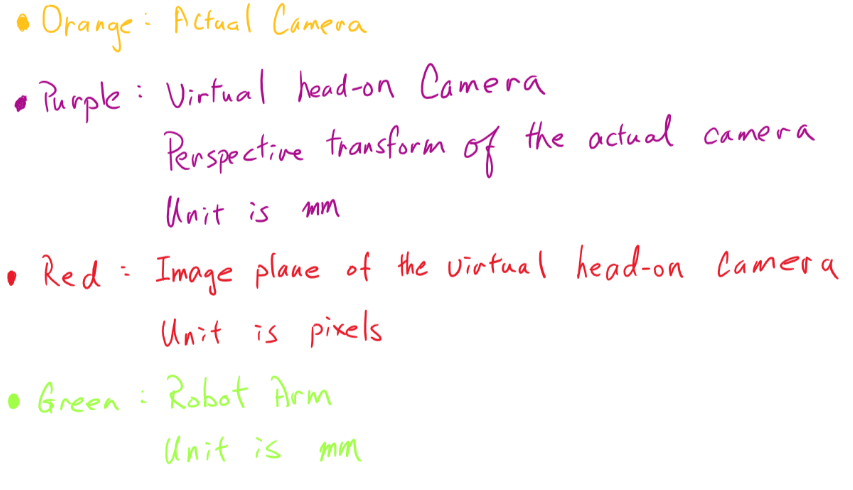 • Orange: Actual Camera
• Purple: Virtual head-on Camera
Perspective transform of the actual camera
Unit is mm
• Red: Image plane of the virtual head-on camera
Unit is pixels
• Green: Robot Arm
Unit is mm